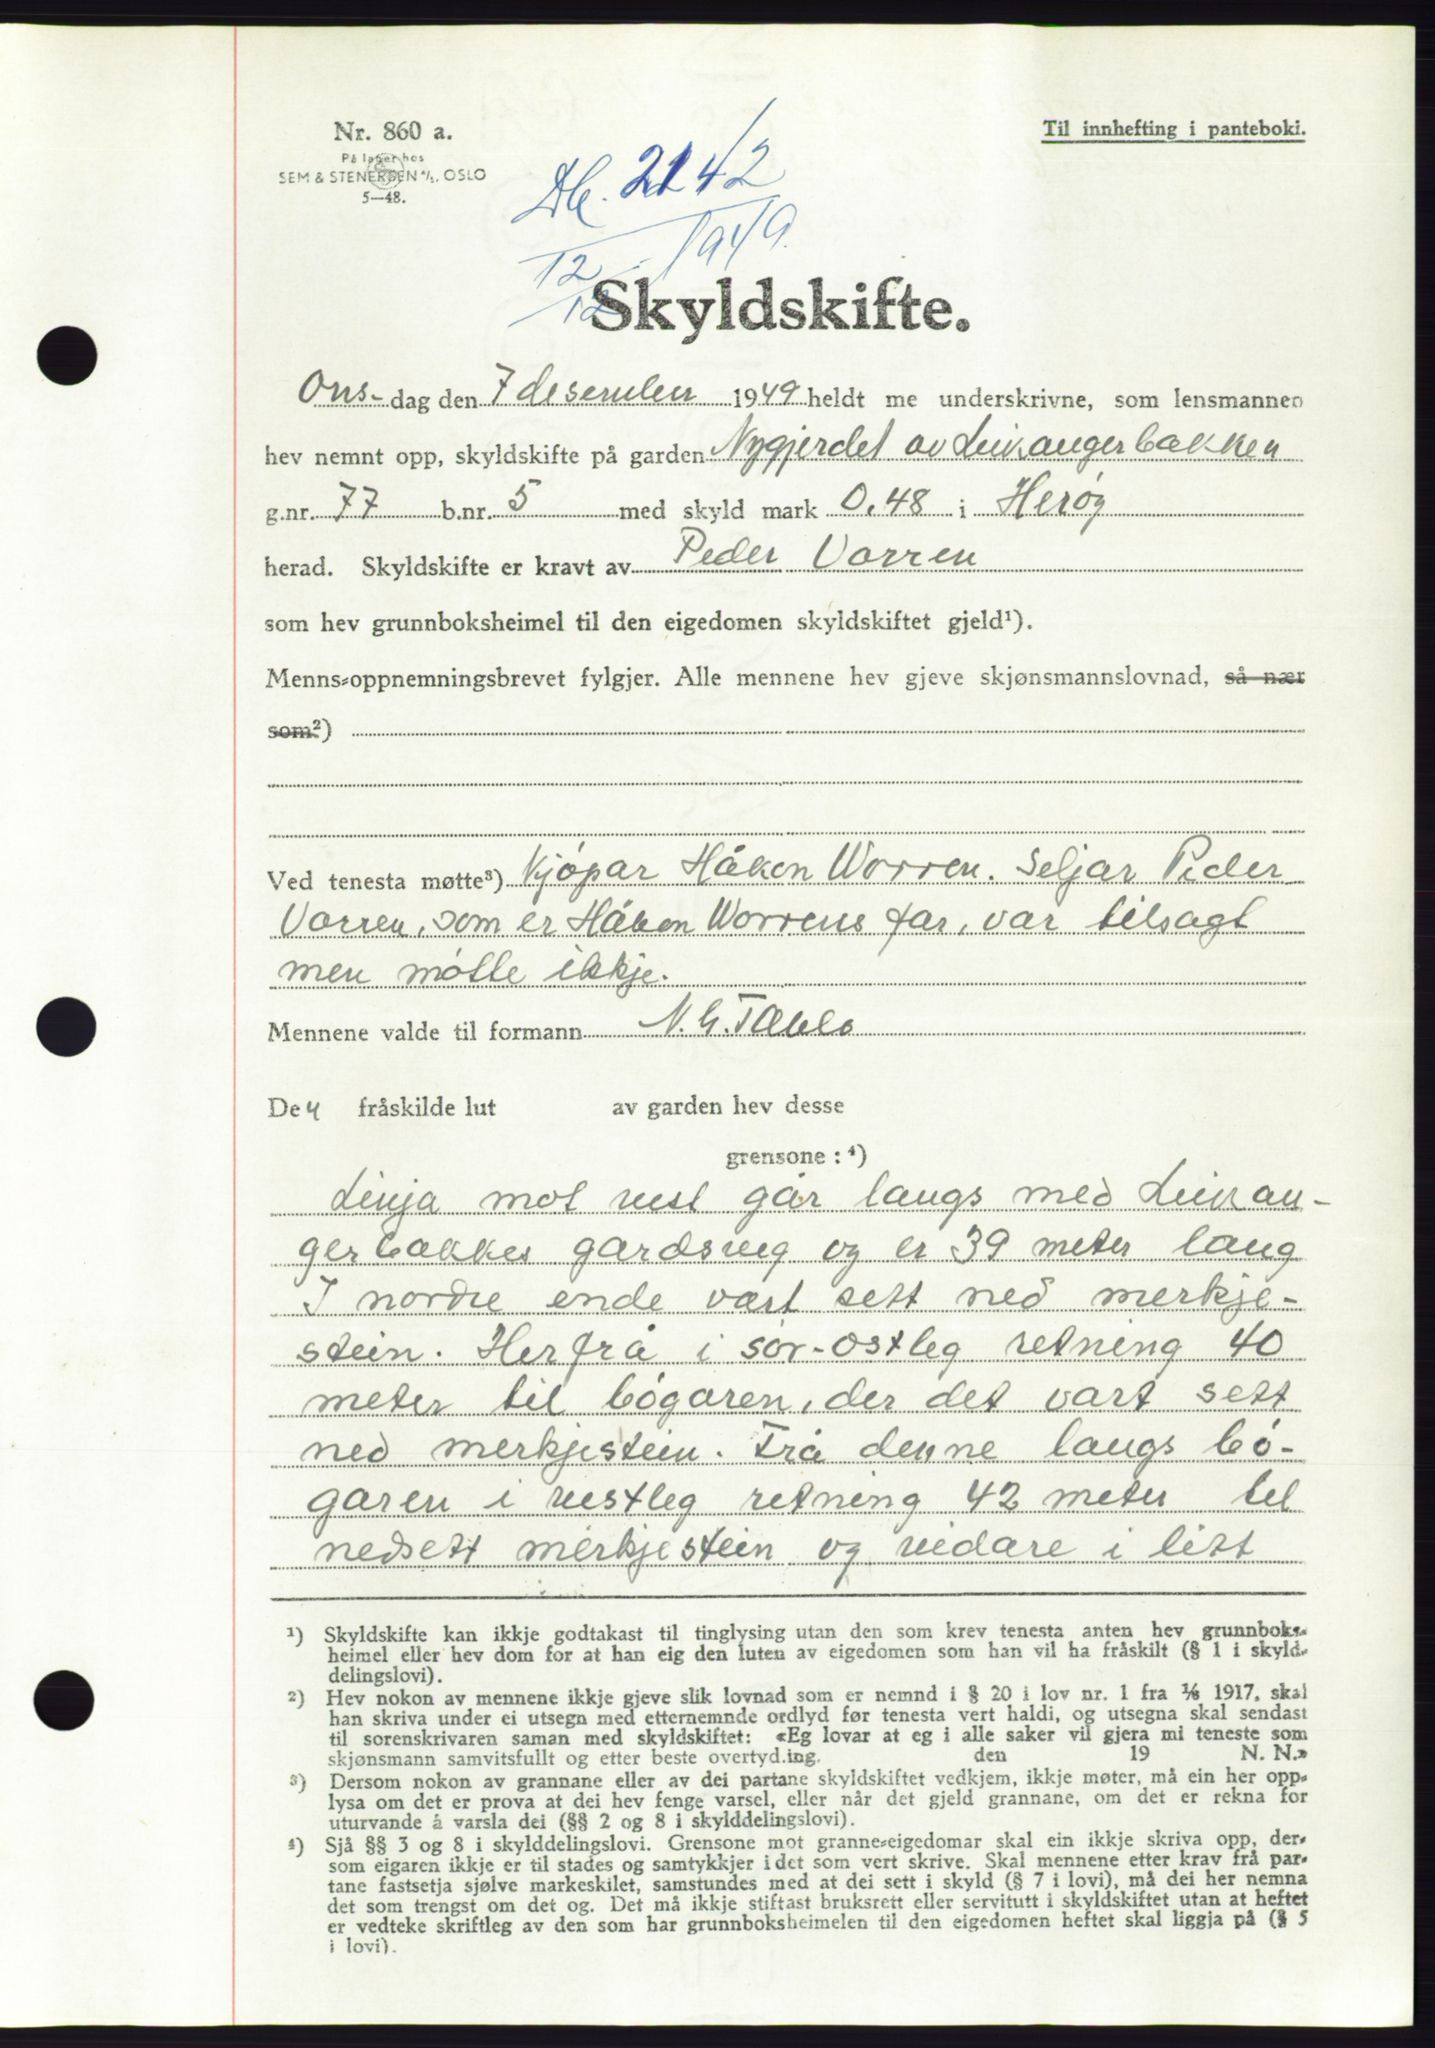 Nr. 860 a.
På lager hos
SEM & STENERSEN A/S, OSLO
5—48.
Til innhefting i panteboki.
Db. 2142
12/12 - 1949.
Skyldskifte.
Ons- dag den 7 desember 1949 heldt me underskrivne, som lensmannen
hev nemnt opp, skyldskifte på garden Nygjerdet av Leikangerbakken
g.nr. 77 b.nr. 5 med skyld mark 0.48 i Herøy
herad. Skyldskifte er kravt av Peder Vorren
som hev grunnboksheimel til den eigedomen skyldskiftet gjeld¹).
Menns-oppnemningsbrevet fylgjer. Alle mennene hev gjeve skjønsmannslovnad, så nær
som²)
Ved tenesta møtte³) Kjøpar Håkon Worren. Seljar Peder
Vorren, som er Håkon Worrens far, var tilsagt
men møtte ikkje.
Mennene valde til formann N. G. Tæklo
De4 fråskilde lut av garden hev desse
grensone : ⁴)
Linja mot vest går langs med Leikan-
gerbakkes gardsveg og er 39 meter lang
I nordre ende vart sett ned merkje-
stein. Herfrå i sør-ostleg retning 40
meter til bøgaren, der det vart sett
ned merkjestein. Frå denne langs bø-
garen i vestleg retning 42 meter til
nedsett merkjestein og vidare i litt
¹) Skyldskifte kan ikkje godtakast til tinglysing utan den som krev tenesta anten hev grunnboks-
heimel eller hev dom for at han eig den luten av eigedomen som han vil ha fråskilt (§ 1 i skyld-
delingslovi).
²) Hev nokon av mennene ikkje gjeve slik lovnad som er nemnd i § 20 i lov nr. 1 fra 1/6 1917, skal
han skriva under ei utsegn med etternemnde ordlyd før tenesta vert haldi, og utsegna skal sendast
til sorenskrivaren saman med skyldskiftet: «Eg lovar at eg i alle saker vil gjera mi teneste som
skjønsmann samvitsfullt og etter beste overtyding. den 19 N. N.»
³) Dersom nokon av grannane eller av dei partane skyldskiftet vedkjem, ikkje møter, må ein her opp-
lysa om det er prova at dei hev fenge varsel, eller når det gjeld grannane, om det er rekna for
uturvande å varsla dei (§§ 2 og 8 i skylddelingslovi).
⁴) Sjå §§ 3 og 8 i skylddelingslovi. Grensone mot granne-eigedomar skal ein ikkje skriva opp, der-
som eigaren ikkje er til stades og samtykkjer i det som vert skrive. Skal mennene etter krav frå par-
tane fastsetja sjølve markeskilet, samstundes med at dei sett i skyld (§ 7 i lovi), må dei her nemna
det som trengst om det og. Det må ikkje stiftast bruksrett eller servitutt i skyldskiftet utan at heftet
er vedteke skriftleg av den som har grunnboksheimelen til den eigedomen heftet skal liggja på (§ 5
i lovi).